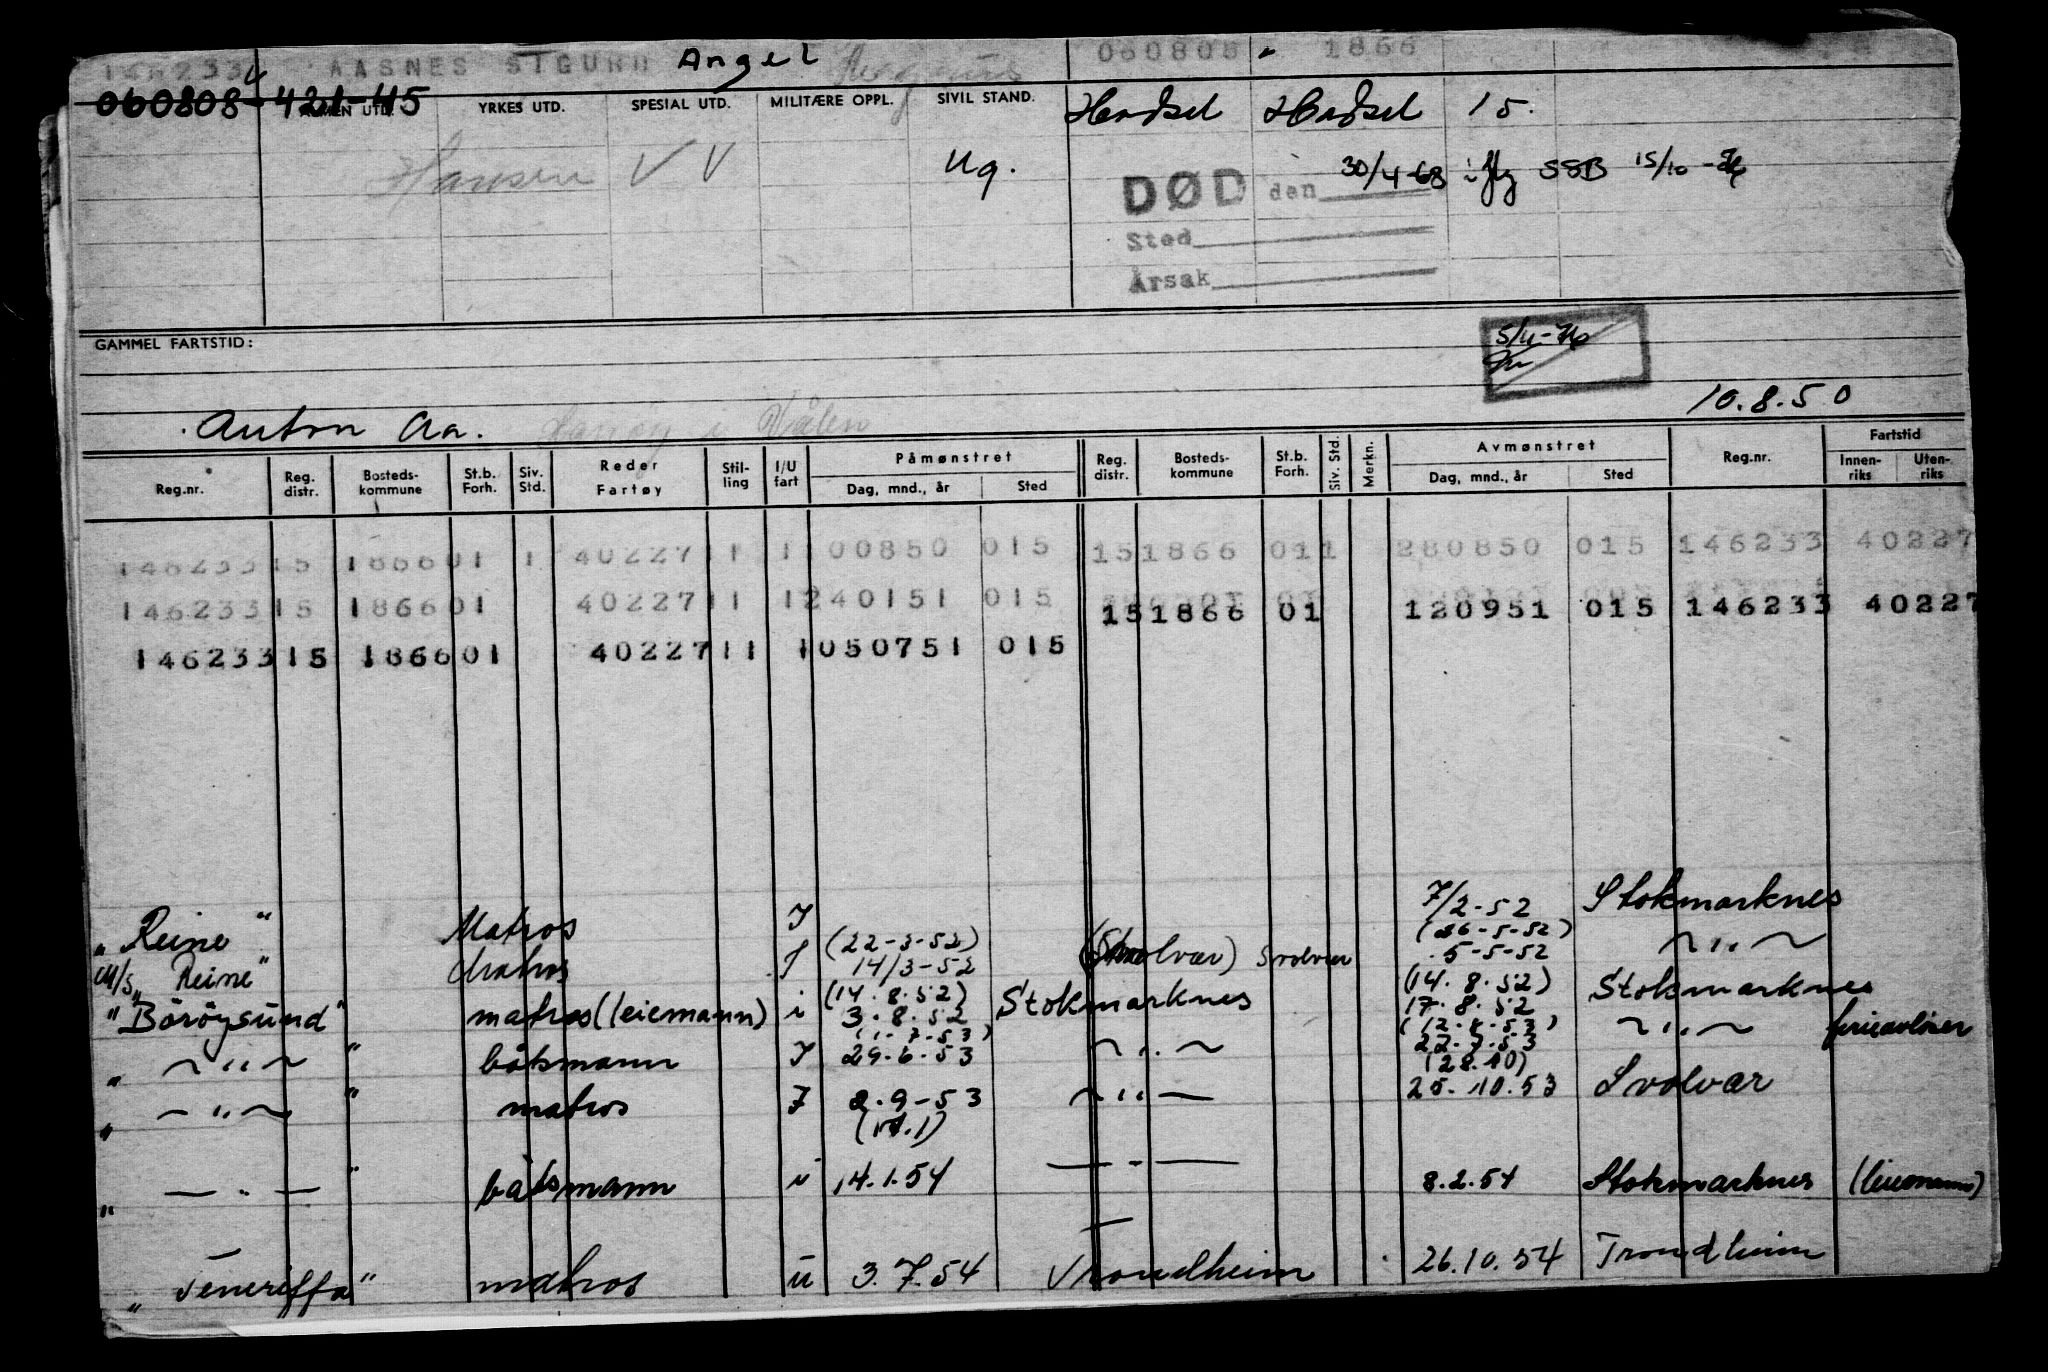 146233 AASNES SIGURD Angel Magnus 060808 1866
060808-421-45
ALMEN UTD. YRKES UTD. SPESIAL UTD. MILITÆRE OPPL. SIVIL STAND. Hadsel Hadsel 15.
Hansen V V ug. DØD den 30/4-68 iflg SSB 15/10-76
Sted
Årsak
GAMMEL FARTSTID:
5/11-76
10.8.50
Anton Aa. Hanøy i Vålen
Reg.nr. Reg. distr. Bosteds-kommune St.b. Forh. Siv. Std. Reder Fartøy Stil-ling I/U fart Påmønstret Dag, mnd., år Sted Reg. distr. Bosteds-kommune St.b. Forh. Siv. Std. Merkn. Avmønstret Dag, mnd., år Sted Reg.nr. Fartstid Innen-riks Uten-riks
146233 15 1866 01 1 40227 11 1 00850 015 15 1866 01 1 280850 015 146233 40227
146233 15 1866 01 40227 11 1 240151 015 15 1866 01 120951 015 146233 40227
146233 15 1866 01 40227 11 1 050751 015
"Reine" Matros I 7/2-52 Stokmarknes
(22-3-52) (26-5-52)
M/S "Reine" Matros I 14/3-52 (Svolvær) Svolvær 5-5-52 〃
(14.8.52) (14.8.52)
"Börøysund" matros (leiemann) i 3.8.52 Stokmarknes 17.8.52 Stokmarknes
(1-7-53) (12.7.53)
" 〃 " båtsmann I 29.6.53 〃 22.7.53 〃 ferieavløser
(28.10)
" 〃 " matros I 2.9-53 〃 25.10.53 Svolvær
(14.1)
" — " — " båtsmann i 14.1.54 — " — 8.2.54 Stokmarknes (leiemann)
"Teneriffa" matros u 3.7.54 Trondheim 26.10.54 Trondheim